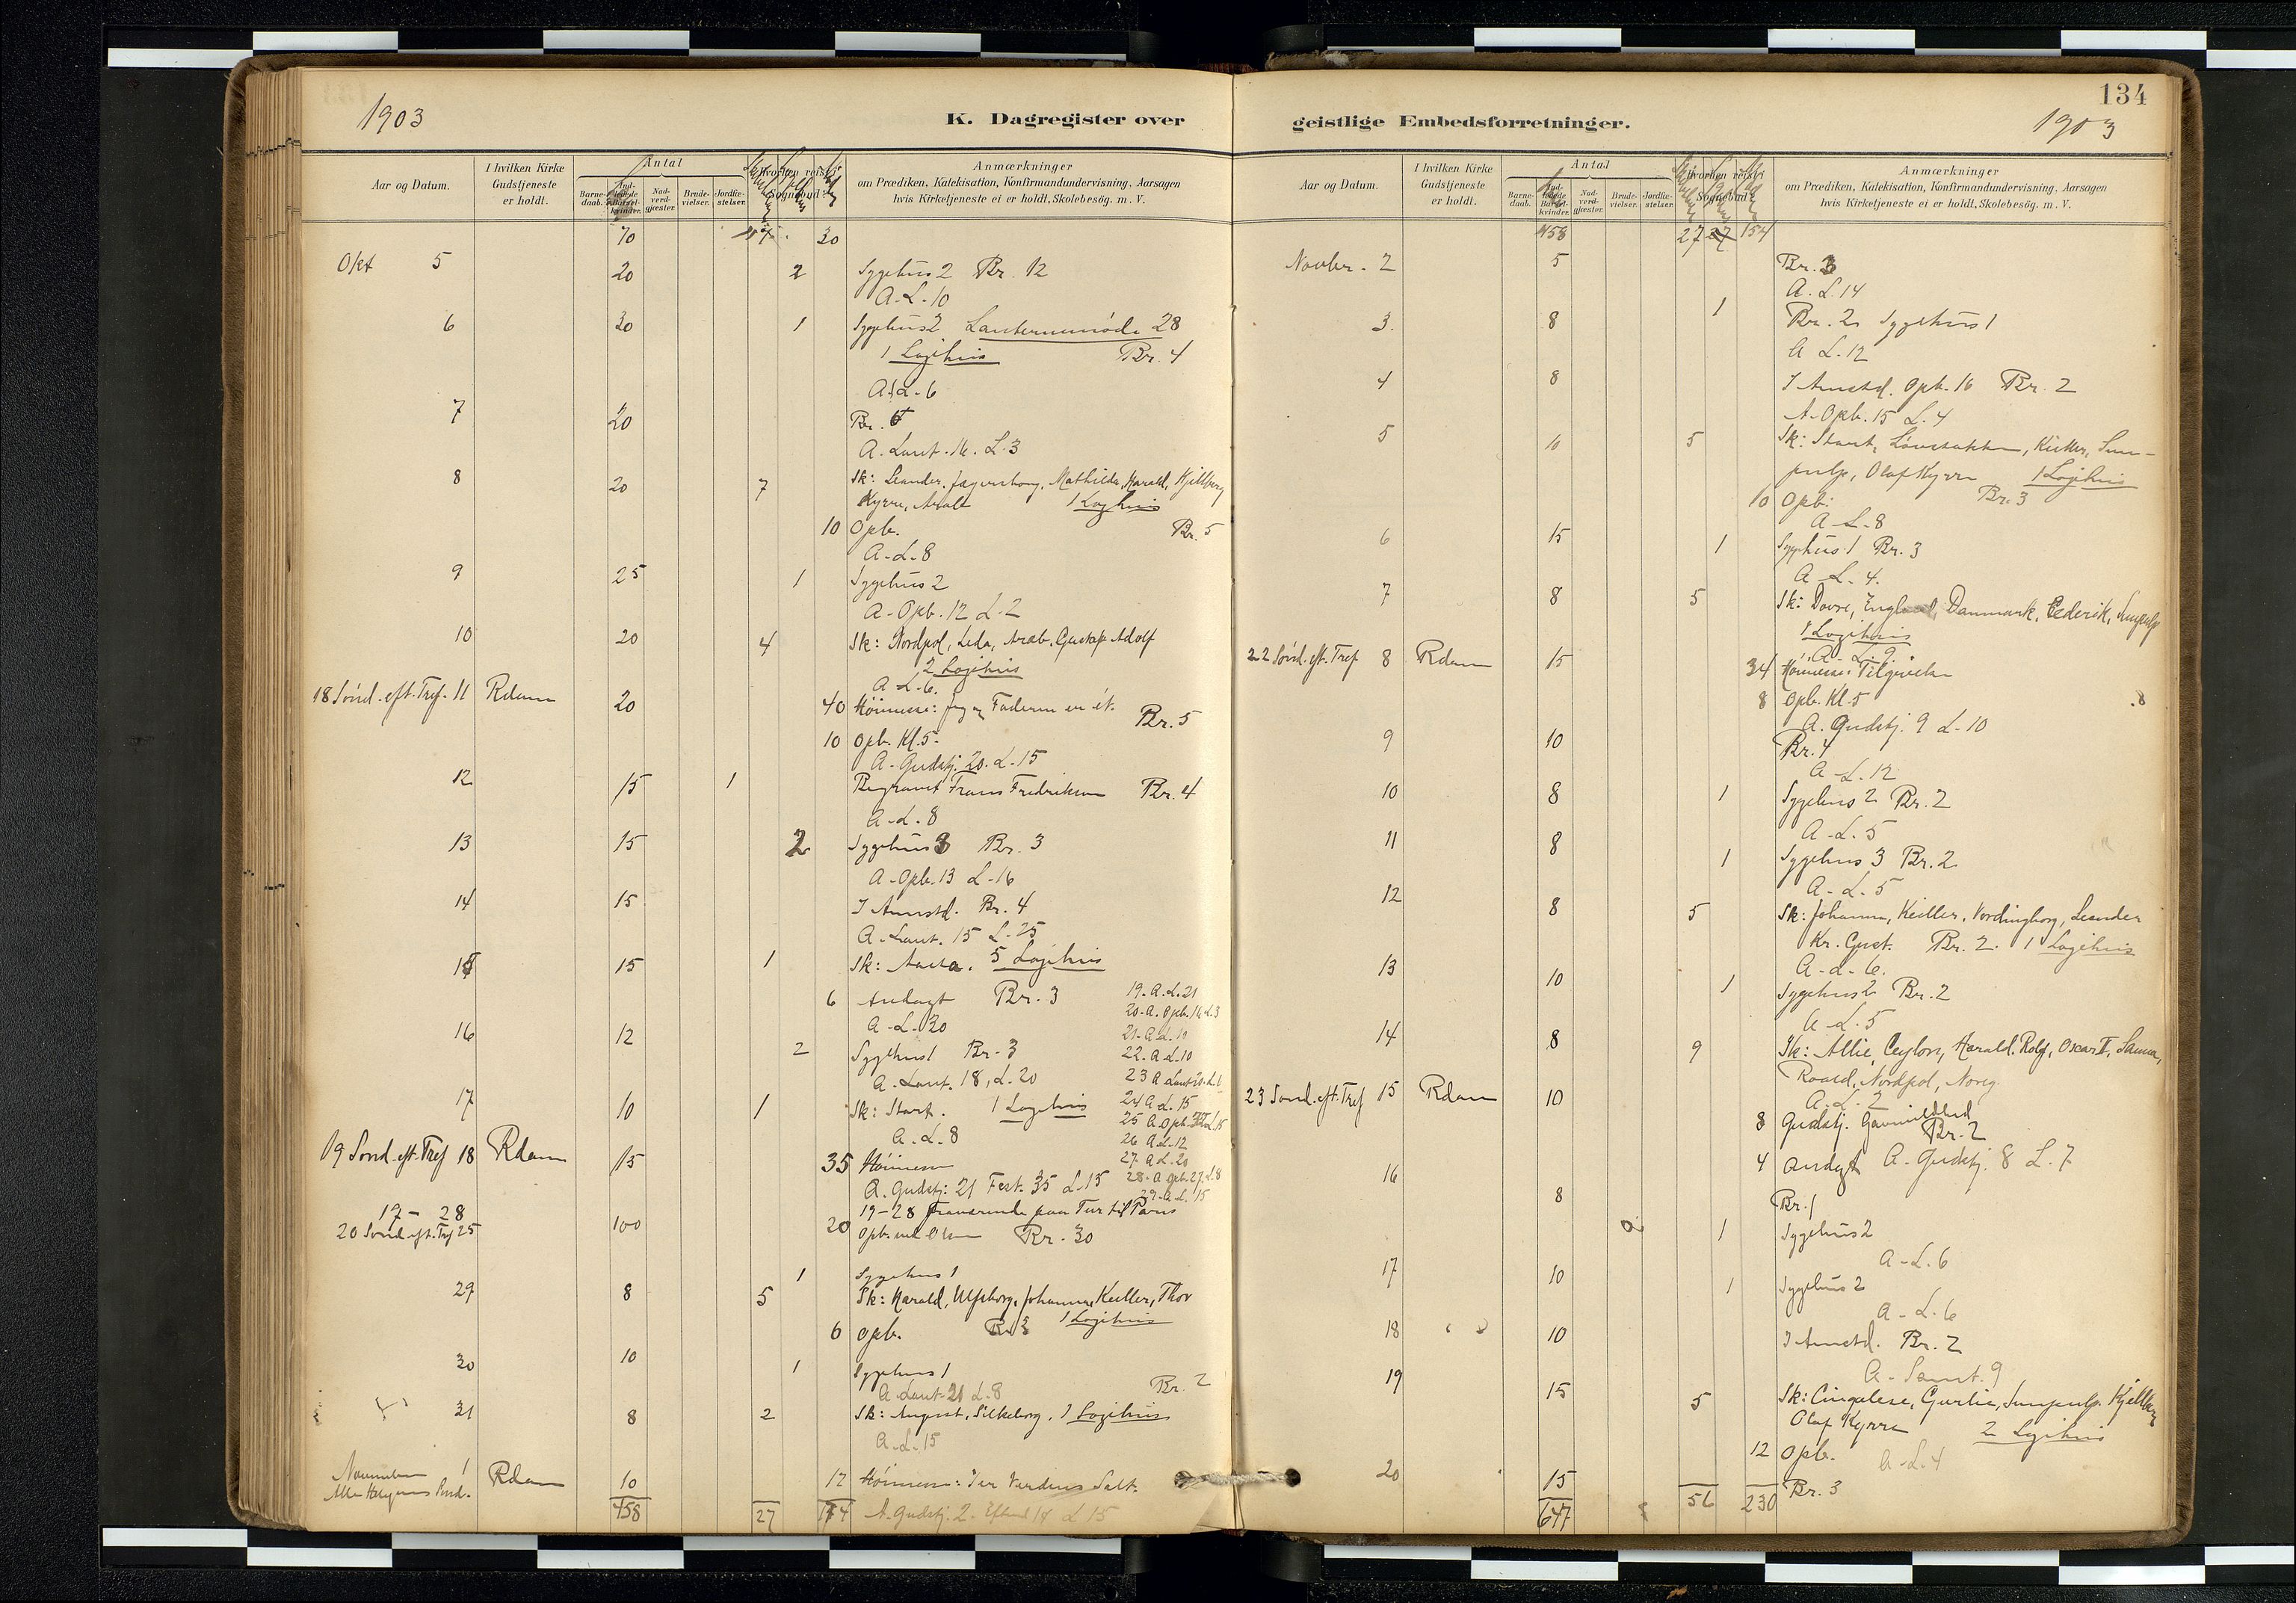 1903
K. Dagregister over
Aar og Datum.
I hvilken Kirke Gudstjeneste er holdt.
Antal
Barne-daab.
Ind-ledede Barsel-kvinder.
Nad-verd-gjæster.
Brude-vielser.
Jordfæ-stelser.
Hvorhen reist i Sognebud?
Anmærkninger
om Prædiken, Katekisation, Konfirmandundervisning. Aarsagen
hvis Kirketjeneste ei er holdt, Skolebesög. m. V.
70 30
Okt 5 20 2 Sygehus 2 Br. 12
A-L-10
6 30 1 Sygehus 2 Lanternemöde 28
1 Logihuis Br. 4
A-L-6
7 20 Br.
A. Lant. 16. L-3
8 20 7 Sk: Leander, Jægersborg, Mathilda, Harald, Kjellberg
Kyrre, 1 Logihuis
10 Opb. Br. 5
A-L-8
9 25 1 Sygehus 2
A-Opb. 12 L-2
10 20 4 Sk: Nordpol, Leda, Arab, Gustaf Adolf
2 Logihuis
A-L-6.
18 Sönd. eft. Tref. 11 Rdam 20 40 Höimesse: Jeg og Faderen er ét. Br. 5
10 Opb. Kl. 5.
A-Gudstj. 20. L-15
12 15 1 Begravet Frans Fredriksen Br. 4
A-L. 8
13 15 2 Sygehus 3 Br. 3
A-Opb. 13 L-16
14 15 I Amstd. Br. 4
A-Lant. 15 L-25
15 15 1 Sk: 5 Logihuis
6 Andagt Br. 3 19-A.L.21
A-L-20 20-A. Opb. 16 L.3
16 12 2 Sygehus 1 Br-3 22-A-L-10
A-Lant. 18, L-20
17 10 1 Sk: Start. 1 Logihuis 24 A L. 15
A-L-8 26 A L-12
19 Sönd. eft. Tref 18 Rdam 15 35 Höimesse 27-A L. 20
A. Gudstj: 21 Fest. 35 L-15 28-A opb. 27. L 8
19-28 fraværende paa Tur til Paris 29-A-L. 15
17-28
20 Sönd. eft. Tref 25 100 20 Opb. ved Olsen Br. 30
1 Sygehus 1
29 8 5 Sk: Harald, Ulfsborg, Johanna, Keiller, Thor
6 Opb. Br. 2 1 Logihuis
30 10 1 Sygehus 1
A-Lant-21 L-8 Br. 2
31 8 2 Sk: August, Silkeborg. 1 Logihuis
A-L-15
November 1 Rdam 10 12 Höimesse: I er Verdens Salt.
Alle Helgens Sönd.
458 27 A-Gudstj. 2. L 15
134
geistlige Embedsforretninger.
1903
Aar og Datum.
I hvilken Kirke Gudstjeneste er holdt.
Antal
Barne-daab.
Ind-ledede Barsel-kvinder.
Nad-verd-gjæster.
Brude-vielser.
Jordfæ-stelser.
Hvorhen reist i Sognebud?
Anmærkninger
om Prædiken, Katekisation, Konfirmandundervisning. Aarsagen
hvis Kirketjeneste ei er holdt, Skolebesög. m. V.
458 27 154
Novbr. 2 5 Br. 3
A. L. 14
3. 8 1 Br. 2 Sygehus 1
A L. 12
4 8 I Amstd. Opb. 16 Br. 2
A-Opb. 15 L. 4
5 10 5 Sk: Start, Lövstakken, Keiller, Sun-
pulp, Olaf Kyrre 1 Logihuis
10 Opb: Br. 3
A-L-8
6 15 1 Sygehus 1 Br. 3
A-L. 4.
7 8 5 Sk: Dovre, England, Danmark, Cederik, Sunpulp
1 Logihuis
A-L. 9.
22 Sönd. eft. Tref 8 Rdam 15 34 Höimesse: Tilgivelse
8 Opb. Kl. 5 .8
A. Gudstj. 9 L-10
9 10 Br. 4
A-L. 12
10 8 1 Sygehus 2 Br. 2
A-L. 5
11 8 1 Sygehus 3 Br. 2
A-L. 5
12 8 5 Sk: Johanna, Keiller, Vordingborg, Leander
Kr. Gust. Br. 2. 1 Logihuis
A-L-6.
13 10 1 Sygehus 2 Br. 2
A-L. 5
14 8 9 Sk: Allie, Ceylon, Harald, Rolf, Oscar II, Sanna,
Roald, Nordpol, Noreg.
A.-L. 2
23 Sönd. eft. Tref 15 Rdam 10 8 Gudstj. Gavmildhed
Br. 2
4 Andagt A-Gudstj. 8 L. 7
16 8 Br. 1
1 Sygehus 2
A-L. 6
17 10 1 Sygehus 2
A-L. 6
18 10 I Amstd. Br. 2
A-Lant. 9
19 15 5 Sk: Cingalese, Gurlie, Sunpulp, Kjellberg
Olaf Kyrre 2 Logihuis
12 Opb. A-L. 4
20 15 Br. 3
647 56 230